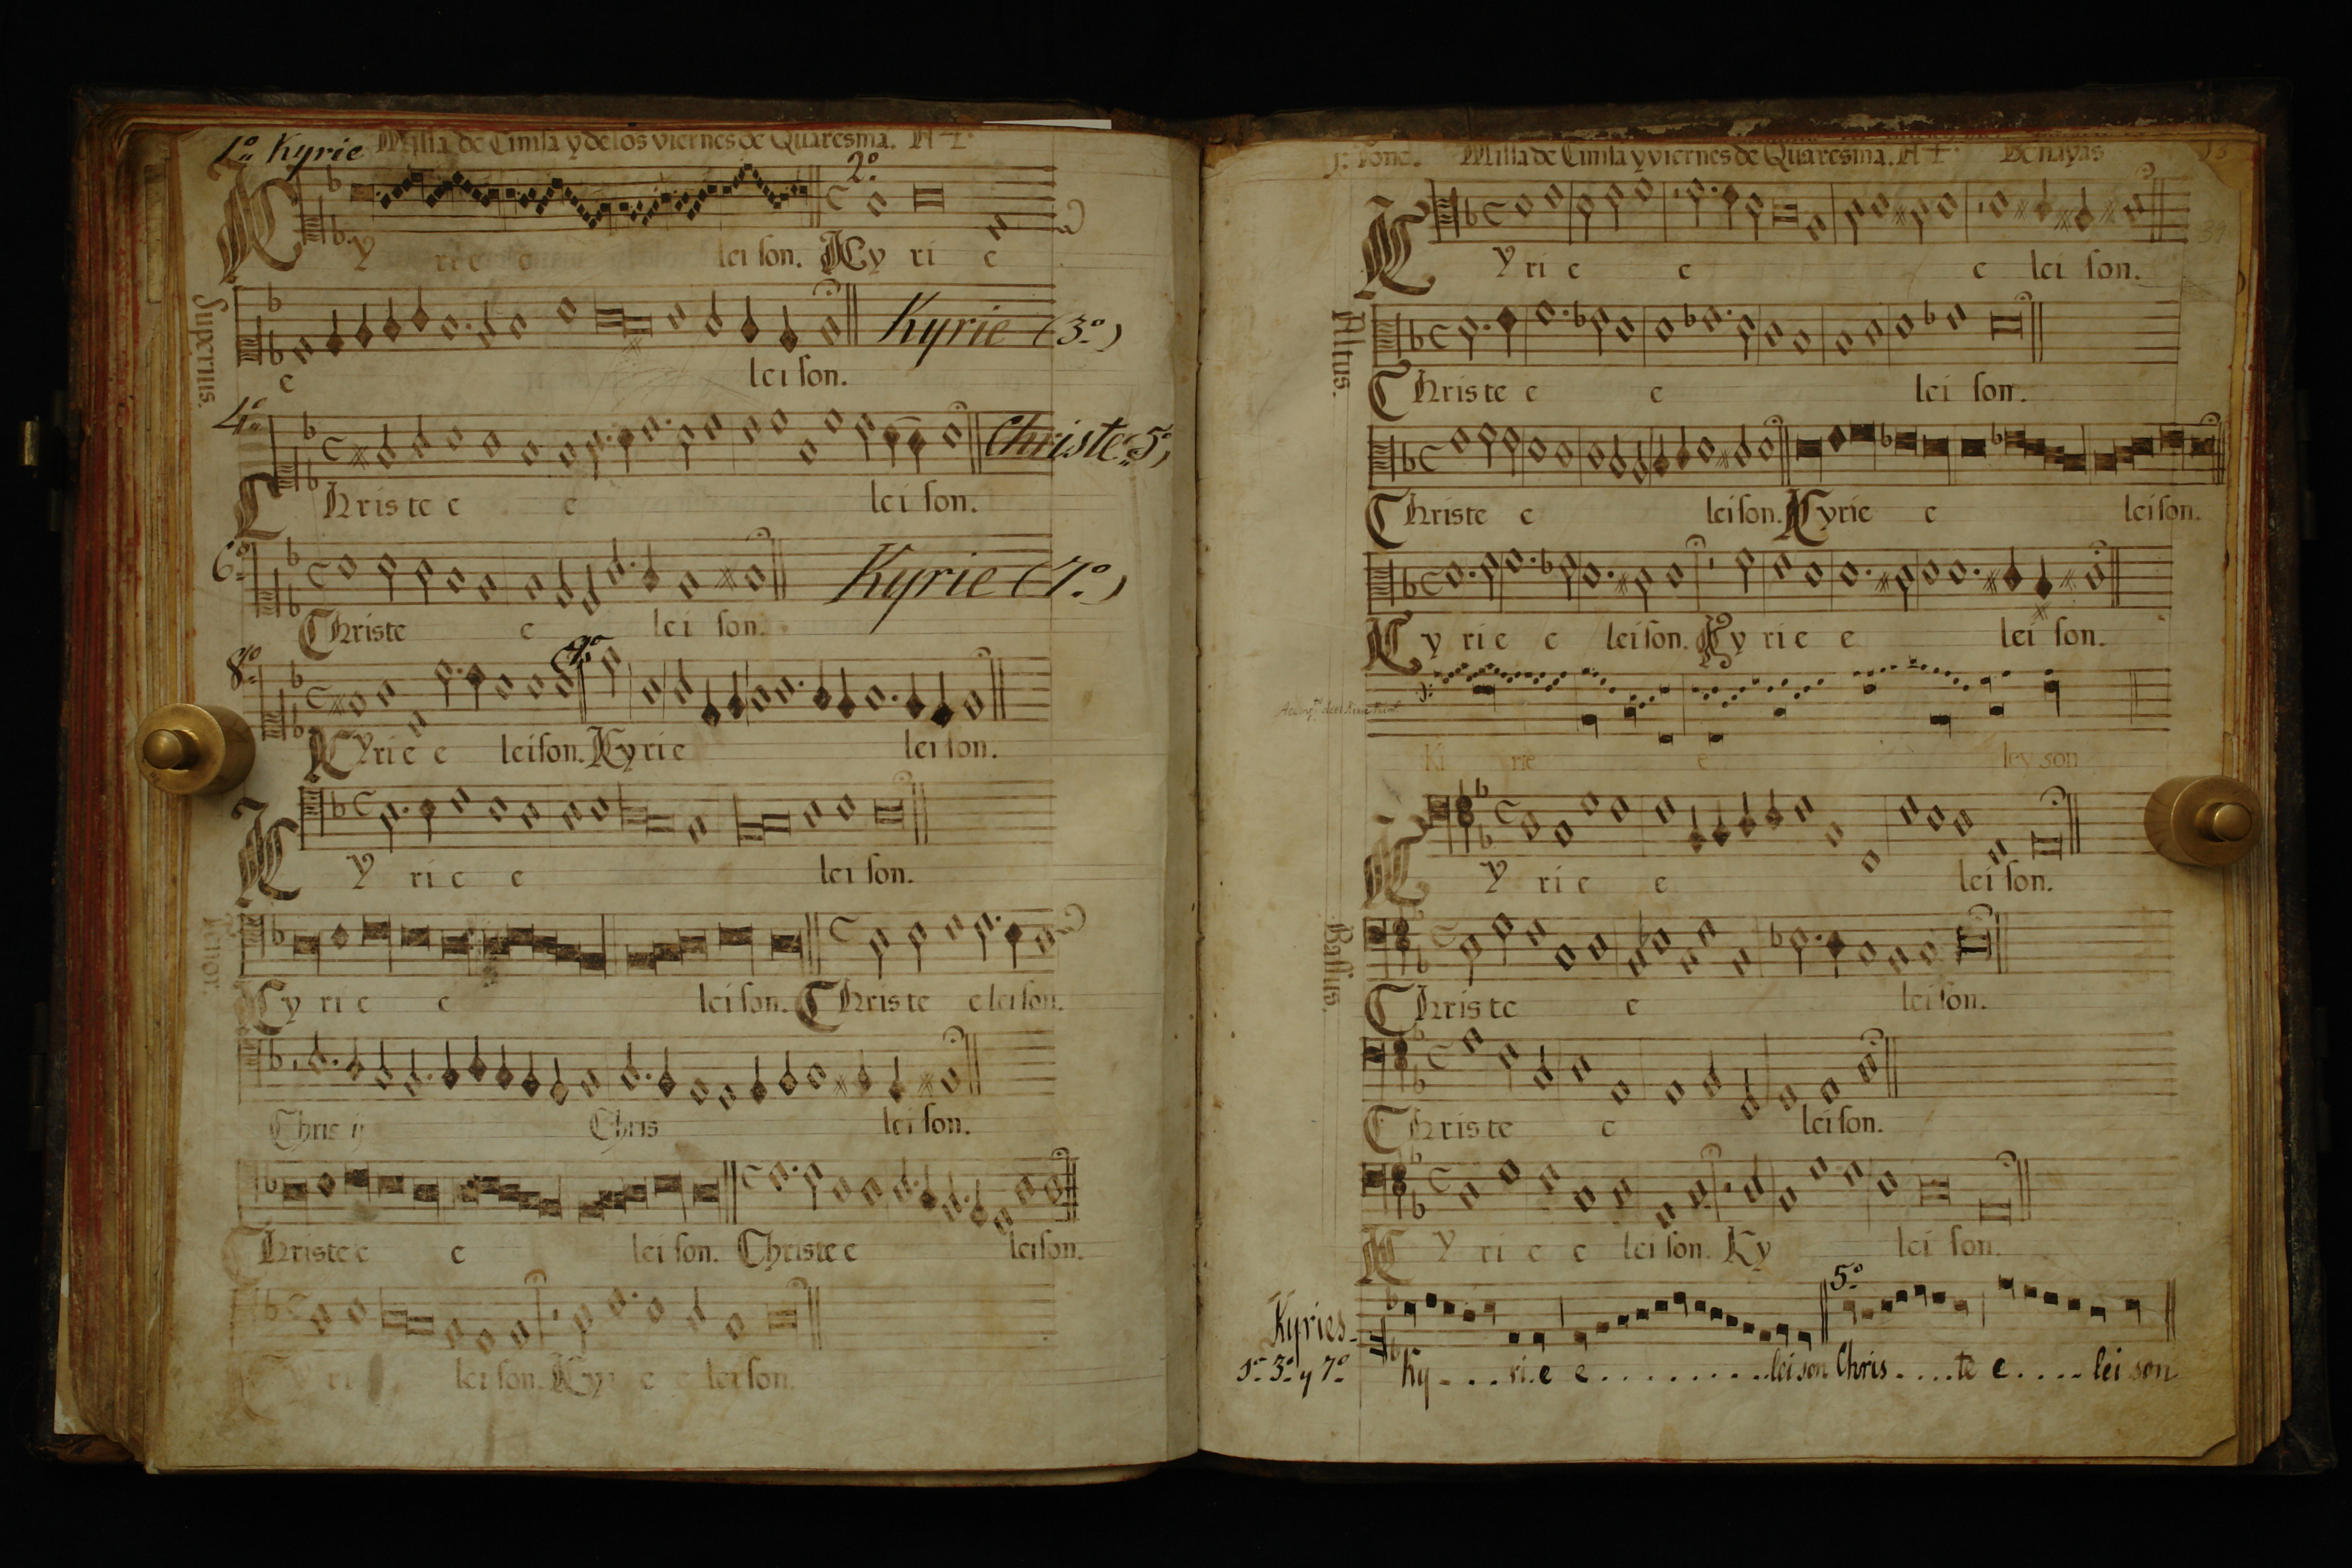 1º Kyrie Missa de Ceniza y de los viernes de Quaresma. A 4.
2º
Ky rie e lei son. Ky ri e
Superius.
Kyrie (3º)
e lei son.
4º
Christe 5º
Christe e e lei son.
6º
Kyrie (7º)
Christe e lei son.
8º 9º
Kyrie e leison. Kyrie leison.
Ky ri e e lei son.
Tenor.
Ky ri e e leison. Christe eleison.
Chris ij Chris lei son.
Christe e e lei son. Christe e leison.
Ky ri lei son. Ky e e leison.
Missa de Ceniza y viernes de Quaresma. A 4. Benayas
39
Ky rie e e lei son.
Altus.
Christe e e lei son.
Christe e leison. Kyrie e leison.
Ky rie e leison. Ky rie e lei son.
Ki rie e ley son
Ky ri e e lei son.
Bassus.
Christe e leison.
Christe e leison.
Ky ri e e lei son. Ky lei son.
5º
Kyries
1º 3º y 7º Ky - . . . ri . e e . . . . . . . . . . leison Chris . . . . te e . . . . lei son